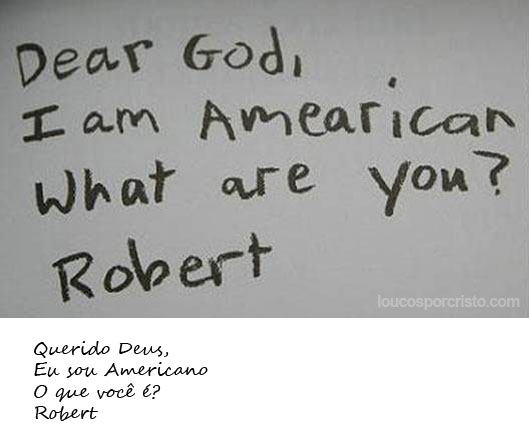 Dear God,
I am Amearican
What are you?
Robert
loucosporcristo.com
Querido Deus,
Eu sou Americano
O que você é?
Robert